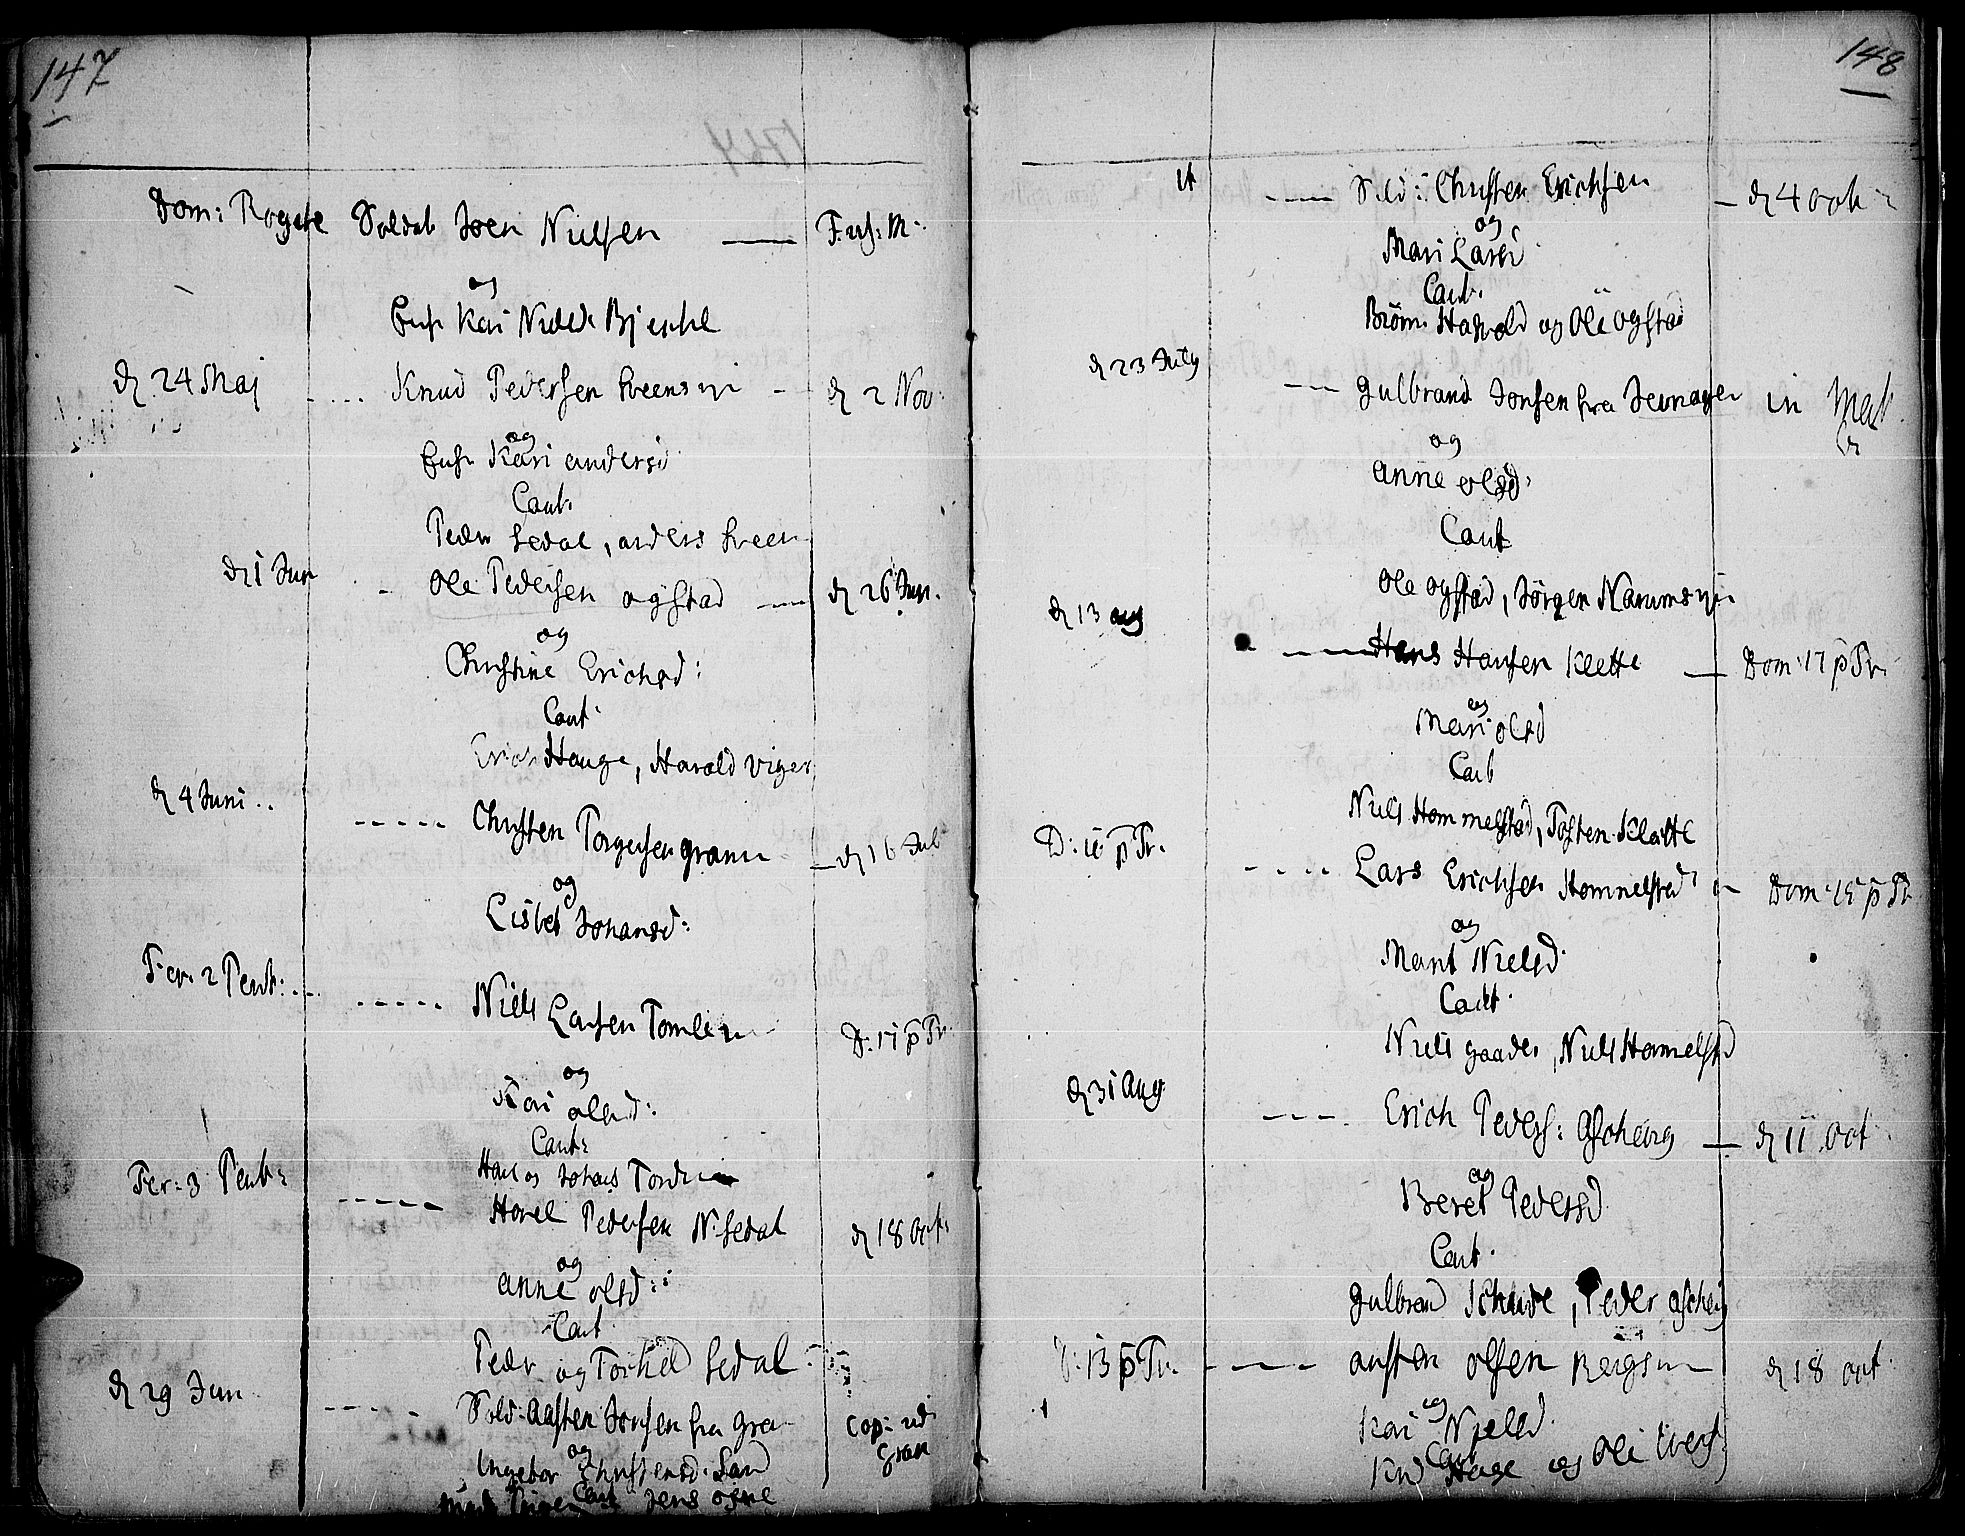 147
Dom: Rogate Soldat Joen Nielsen — F. asc. M.
og
Enke Kari Nielsd. Bjerke
d 24 Maj Knud Pedersen Sveens eje d 2 Nov.
og
Enke Kari andersd
Caut.
Peder Sedal, anders Sveen
d 1 Jun Ole Pedersen ogstad — d 26 Jun.
og
Christine Erichsd:
Caut
Erich Hauge, Harald Viger
d 4 Juni Christen Torgersen gran — d 16 Jul
og
Lisbet Johansd:
Fer. 2 Pent: Niels Larsen Tomlen D: 17 p Tr
og
Kari olsd:
Caut:
Hans og Johans
Fer: 3 Pent: Hovel Pedersen N. Sedal d 18 oct.
og
anne olsd:
Caut
Peder og Torkel Sedal
d 29 Jun Sold: Aasten Jonsen fra gran Cop: ud
og Gran
Ingebor Christensd. Land
Caut Jens
148
it Sold: Christen Erichsen — d 4 oct
og
Mari Larsd
Caut.
Harald og Ole ogstad
d 23 July Gulbrand Jonsen fra Jevnager in Mart.
og
anne olsd
Caut
Ole ogstad, Jörgen Narums eje
d 13 aug Hans Hansen Klette — Dom 17 p Tr.
og
Mari olsd
Caut
Niels Hommelstad, Tosten Klætte
D: 10 p Tr. Lars Erichsen Hommelstad Dom 15 p Tr
og
Marit Nielsd
Caut
Niels gaarder, Niels Hommelstad
d 31 Aug Erich Peders: Ascheirg — d 11 oct
og
Beret Pedersd
Caut.
Gulbrand Schure, Peder ascheirg
D: 13 p Tr. austen olsen Bergs d 18 oct
og
Kari Nielsd
Caut
Knd Hage og Ole